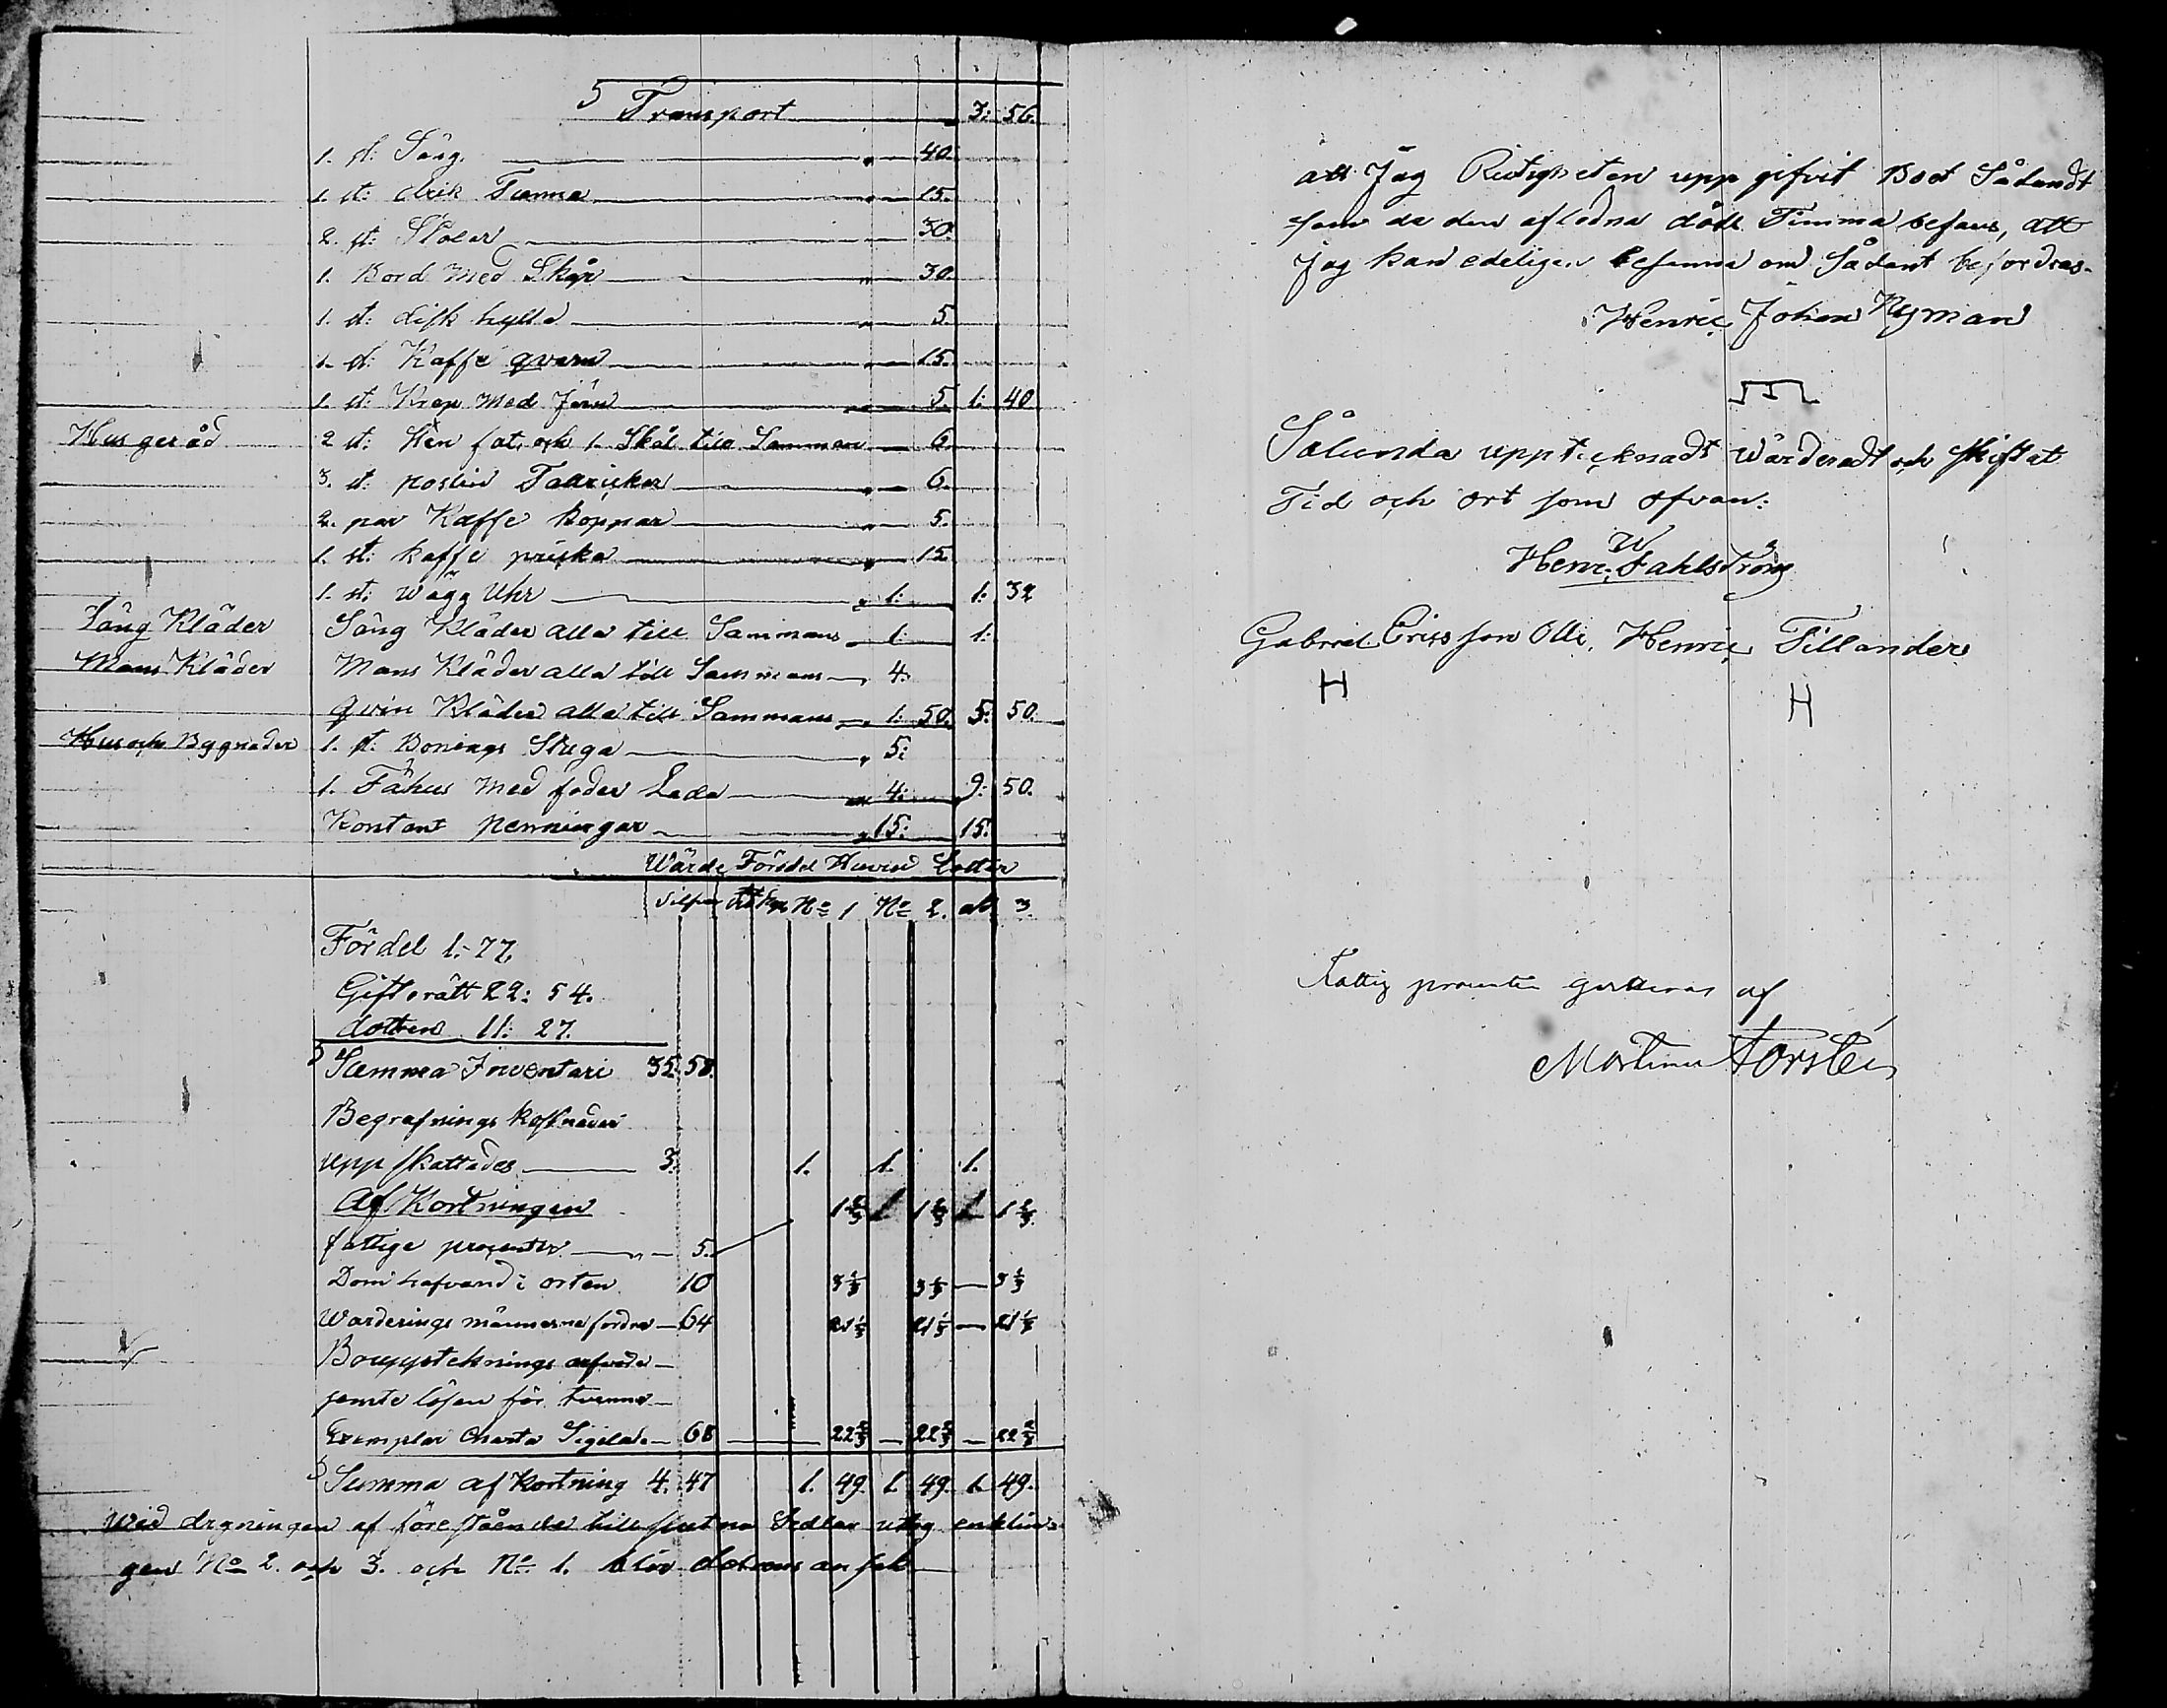 5 Transport 3: 56.
1. st: Säng 40.
1. st: drik Tunna 15.
2. st: Stolar 30.
1. Bord Med Skåp 30.
1. st: disk hylla 5.
1. st: Kaffe qvarn 15.
1. st: Krop Med Järn 5. 1: 40
Hus geråd 2 st: Sten fat och 1. Skål till Samman 6.
3. st: poslin Tallricker 6.
2. par Kaffe koppar 5.
1. st: kaffe priska 15
1. st: wägg Uhr 1: 1: 32
Säng Kläder Säng Kläder alla till Sammans 1: 1:
Mans Kläder Mans Kläder alla till Sammans 4:
qvin Kläder alla till Sammans 1: 50. 5: 50.
Hus och Bygnader 1. st: Bonings Stuga 5:
1. Fähus Med foder Lada 4: 9: 50.
Kontant penningar 15: 15:
Wärde Fördel Lotter
Silfver No 1 No 2. 3.
Fördel 1: 77.
Giftorätt 22: 54.
dottren 11: 27.
Summa Inventari 35: 58.
Begrafnings kostnader
upp skattades 3. 1. 1. 1.
Af Kortningen 1 2/3 1 2/3 1 2/3
fattige procenter 5.
Dom hafvand i orten 10 3 1/3 3 1/3 3 1/3
Warderings männerne fordra 64 21 1/3 21 1/3 21 1/3
Boupptecknings arfvode
jemte lösen för tvenne
Exemplar Charta Sigilata 68 22 2/3 22 2/3 22 2/3
Summa af Kortning 4. 47 1. 49 1. 49. 1. 49.
Wid dragningen af förestående till slutna Sedlar utog enklin-
gen No 2. och 3. och No 1. blir dotrens an
att Jag Riktigheten upp gifvit Boet Sådandt
som de den afledna döds Timma befans, att
Jag kan edeligen besanna om Sådant befordras.
Henric Johan Nyman
Sålunda uppteknadt wärderadt och skiftat
Tid och ort som ofvan:
Henr: W Fahlström
Gabriel Ericsson Olli, Henric Tillander
H H
Fattig procenten qvitteras af
Forstén